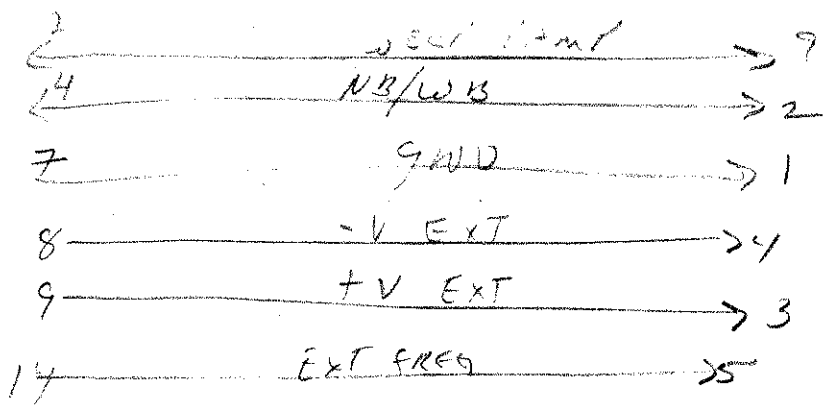 2 9
4 NB/WB 2
7 GND 1
8 -V EXT 4
9 +V EXT 3
14 EXT FREQ 5